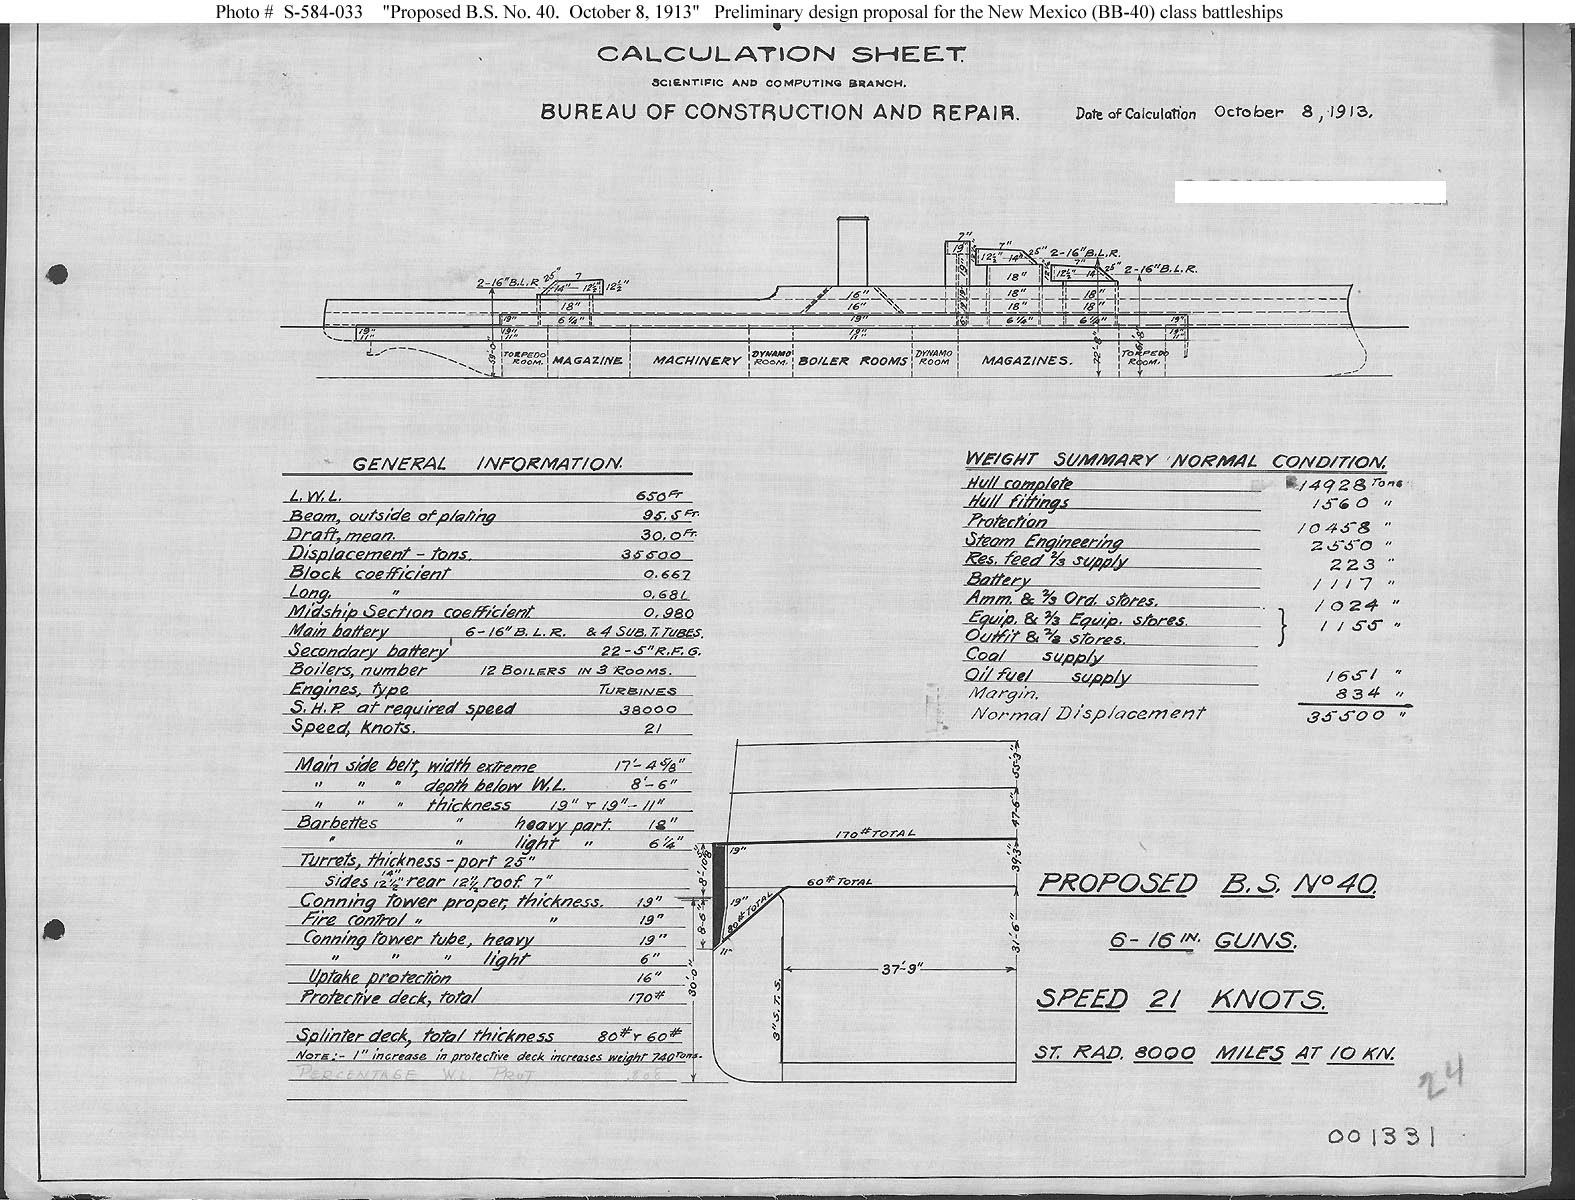 Photo # S-584-033 "Proposed B.S. No. 40. October 8, 1913" Preliminary design proposal for the New Mexico (BB-40) class battleships
CALCULATION SHEET.
SCIENTIFIC AND COMPUTING BRANCH.
BUREAU OF CONSTRUCTION AND REPAIR.
Date of Calculation October 8, 1913.
7"
19"
7"
25"
2-16" B.L.R.
12½" 14"
7"
25"
2-16" B.L.R.
12½" 14"
2-16" B.L.R
25"
7
14" - 12½"
12½"
18"
6¼"
16"
16"
19"
18"
18"
18"
6¼"
18"
18"
6¼"
19"
11"
19"
19"
11"
19"
11"
19"
19"
11"
TORPEDO ROOM.
MAGAZINE
MACHINERY
DYNAMO ROOM.
BOILER ROOMS
DYNAMO ROOM
MAGAZINES.
TORPEDO ROOM.
GENERAL INFORMATION.
L.W.L. 650 Ft
Beam, outside of plating 95.5 Ft.
Draft, mean. 30.0 Ft.
Displacement - tons. 35500
Block coefficient 0.667
Long. " 0.681
Midship Section coefficient 0.980
Main battery 6-16" B.L.R. & 4 SUB.T.TUBES.
Secondary battery 22-5" R.F.G.
Boilers, number 12 BOILERS IN 3 ROOMS.
Engines, type TURBINES
S.H.P. at required speed 38000
Speed, knots. 21
Main side belt, width extreme 17'-4⅝"
" " " depth below W.L. 8'-6"
" " " thickness 19" & 19"-11"
Barbettes " heavy part. 18"
" " light " 6¼"
Turrets, thickness - port 25"
sides 14" 12½" rear 12½" roof 7"
Conning Tower proper, thickness. 19"
Fire control " " 19"
Conning tower tube, heavy 19"
" " " light 6"
Uptake protection 16"
Protective deck, total 170#
Splinter deck, total thickness 80# & 60#
NOTE:- 1" increase in protective deck increases weight 740 Tons.
PERCENTAGE W.L. PROT .808
WEIGHT SUMMARY NORMAL CONDITION.
Hull complete 14928 Tons
Hull fittings 1560 "
Protection 10458 "
Steam Engineering 2550 "
Res. feed ⅔ supply 223 "
Battery 1117 "
Amm. & ⅔ Ord. stores. 1024 "
Equip. & ⅔ Equip. stores. } 1155 "
Outfit & ⅔ stores.
Coal supply
Oil fuel supply 1651 "
Margin. 834 "
Normal Displacement 35500 "
55'-3"
47'-6"
170# TOTAL
39'-3"
19"
60# TOTAL
19"
80# TOTAL
8'-6"
11"
31'-6"
37'-9"
30'-0"
3" S.T.S.
PROPOSED B.S. No 40.
6-16 IN. GUNS.
SPEED 21 KNOTS.
ST. RAD. 8000 MILES AT 10 KN.
24
001331